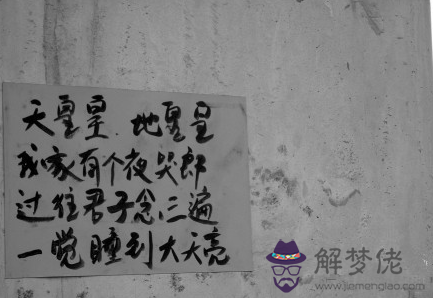 天皇皇 地皇皇
我家有个夜哭郎
过往君子念三遍
一觉睡到大天亮
解梦佬
www.jiemenglao.com